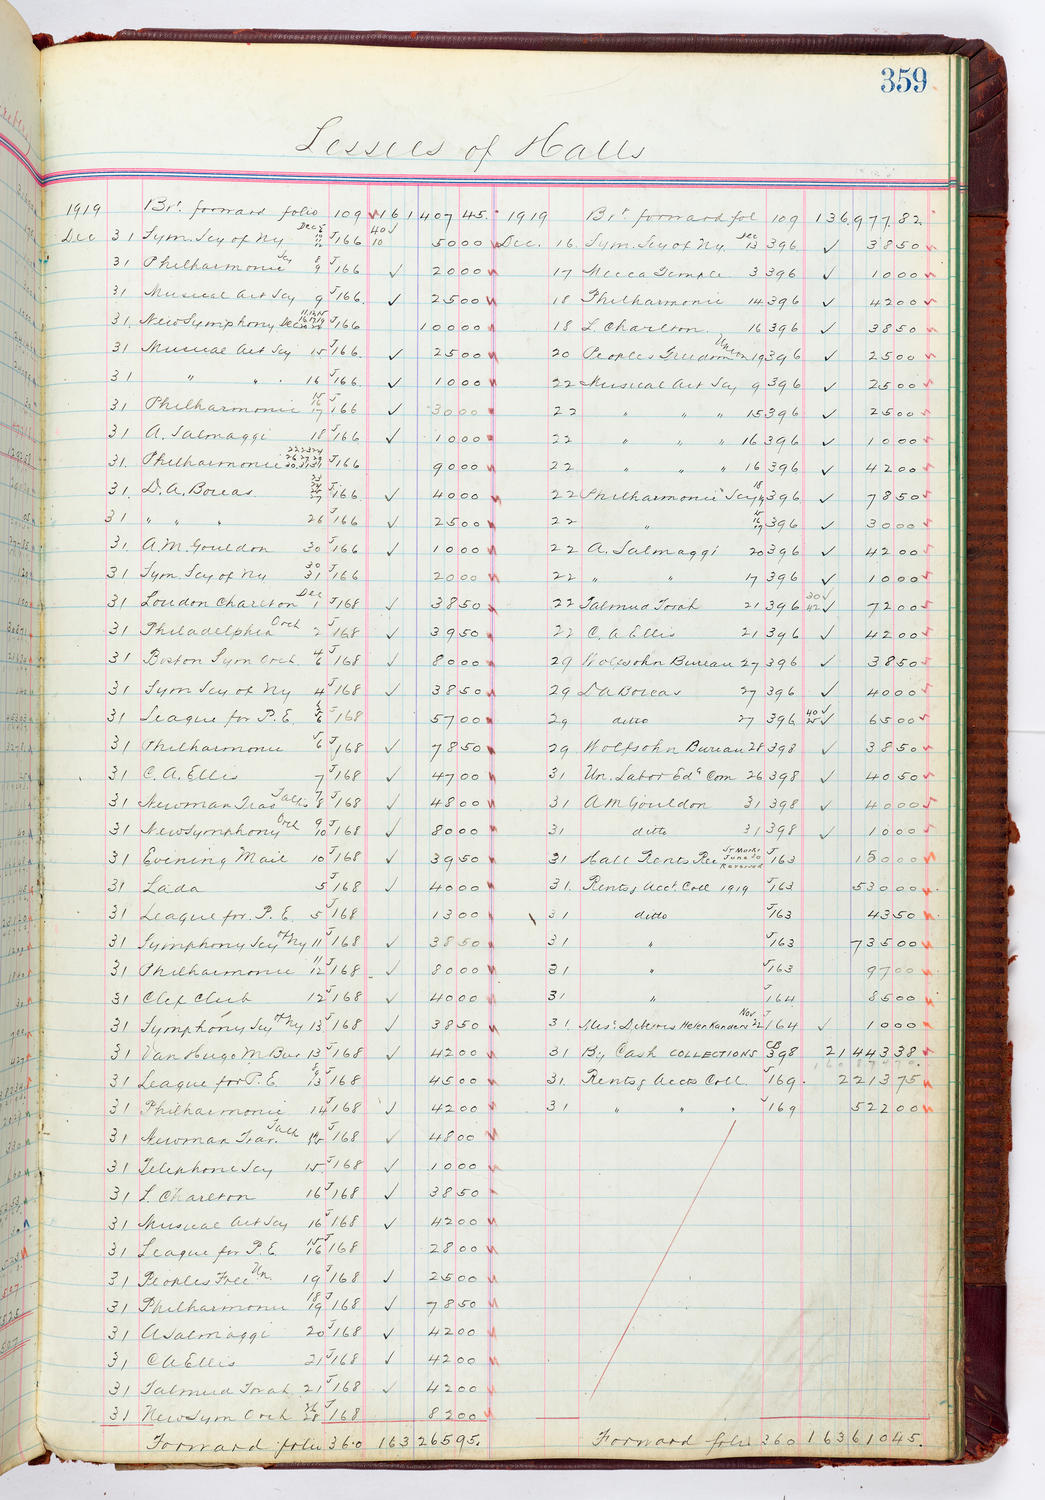 359
Lessees of Halls
1919 Brt. forward folio 109 161 407 45.
Dec 31 Sym. Scy of Ny Dec 166 40 10 5000
31 Philharmonic Scy 8 9 J166 2000
31 Musical Art Scy 9 J166 2500
31 New Symphony Dec J166 10000
31 Musical Art Scy 15 J166 2500
31 " " 16 J166 1000
31 Philharmonic 15 16 17 J166 3000
31 A. Salmaggi 18 J166 1000
31 Philharmonic 22 23 24 26 27 29 30.31 J166 9000
31 D.A. Boreas 27 J166 4000
31 " " " 26 J166 2500
31 A.M. Gouldon 30 J166 1000
31 Sym. Scy of Ny 30 31 J166 2000
31 Loudon Charlton Dec 1 J168 3850
31 Philadelphia Orch 2 J168 3950
31 Boston Sym Orch 4 6 J168 8000
31 Sym Scy of Ny 4 J168 3850
31 League for P.E. J168 5700
31 Philharmonic 5 6 J168 7850
31 C.A. Ellis 7 J168 4700
31 Newman Trav Talks 7 8 J168 4800
31 New Symphony Orch 9 10 J168 8000
31 Evening Mail 10 J168 3950
31 Lada 5 J168 4000
31 League for P.E. 5 J168 1300
31 Symphony Scy of Ny 11 J168 3850
31 Philharmonic 11 12 J168 8000
31 Clef Club 12 J168 4000
31 Symphony Scy of Ny 13 J168 3850
31 Van Hugo M. Bur 13 J168 4200
31 League for P.E. 13 J168 4500
31 Philharmonic 14 J168 4200
31 Newman Trav. Talk J168 4800
31 Telephone Scy 15 J168 1000
31 L. Charlton 16 J168 3850
31 Musical Art Scy 16 J168 4200
31 League for P.E. 15 16 J168 2800
31 Peoples Free Un. 19 J168 2500
31 Philharmonic 18 19 J168 7850
31 A Salmaggi 20 J168 4200
31 C A Ellis 21 J168 4200
31 Talmud Torah 21 J168 4200
31 New Sym Orch 28 J168 8200
Forward folio 360 163 265 95.
1919 Brt forward fol 109 136,977.82
Dec. 16. Sym. Scy of Ny. Dec 13 396 3850
17 Mecca Temple 3 396 1000
18 Philharmonic 14 396 4200
18 L. Charlton. 16 396 3850
20 Peoples Freedom Union 19 396 2500
22 Musical Art Scy 9 396 2500
22 " " " 15 396 2500
22 " " " 16 396 1000
22 " " " 16 396 4200
22 Philharmonic Scy 18 19 396 7850
22 " 15 16 17 396 3000
22 A. Salmaggi 20 396 4200
22 " " 17 396 1000
22 Talmud Torah 21 396 30 42 7200
22 C. A Ellis 21 396 4200
29 Wolfsohn Bureau 27 396 3850
29 D A Boreas 27 396 4000
29 ditto 27 396 40 25 6500
29 Wolfsohn Bureau 28 398 3850
31 Un. Labor Edl Com 26 398 4050
31 A M Gouldon 31 398 4000
31 ditto 31 398 1000
31 Hall Rents Rec St Marks June 20 Reversed J163 15000
31. Rents Acct. Coll 1919 J163 53000
31 ditto J163 4350
31 " J163 73500
31 " J163 9700
31 " J164 8500
31. Helen Kanders Nov 22 J164 1000
31 By Cash COLLECTIONS CB 398 21 443 38
31. Rents Accts Coll. J169. 2213 75
31 " " " J169 52200
Forward folio 360 163 610 45.